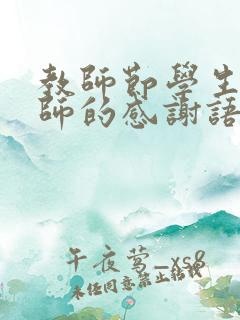 教師節學生
師的感謝語
午夜莺_xs8
未经同意禁止转载